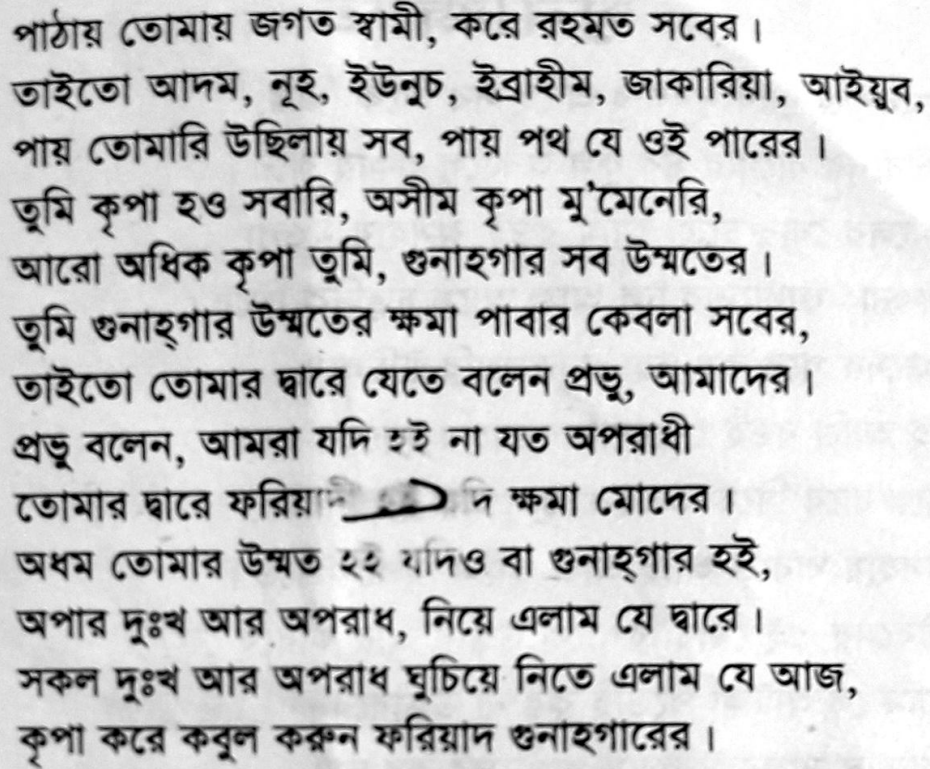 পাঠায় তোমায় জগত স্বামী, করে রহমত সবের।
তাইতো আদম, নূহ, ইউনুচ, ইব্রাহীম, জাকারিয়া, আইয়ুব,
পায় তোমারি উছিলায় সব, পায় পথ যে ওই পারের।
তুমি কৃপা হও সবারি, অসীম কৃপা মু'মেনেরি,
আরো অধিক কৃপা তুমি, গুনাহগার সব উম্মতের।
তুমি গুনাহ্গার উম্মতের ক্ষমা পাবার কেবলা সবের,
তাইতো তোমার দ্বারে যেতে বলেন প্রভু, আমাদের।
প্রভু বলেন, আমরা যদি হই না যত অপরাধী
তোমার দ্বারে ক্ষমা মোদের।
অধম তোমার উম্মত হই যদিও বা গুনাহ্গার হই,
অপার দুঃখ আর অপরাধ, নিয়ে এলাম যে দ্বারে।
সকল দুঃখ আর অপরাধ ঘুচিয়ে নিতে এলাম যে আজ,
কৃপা করে কবুল করুন ফরিয়াদ গুনাহগারের।